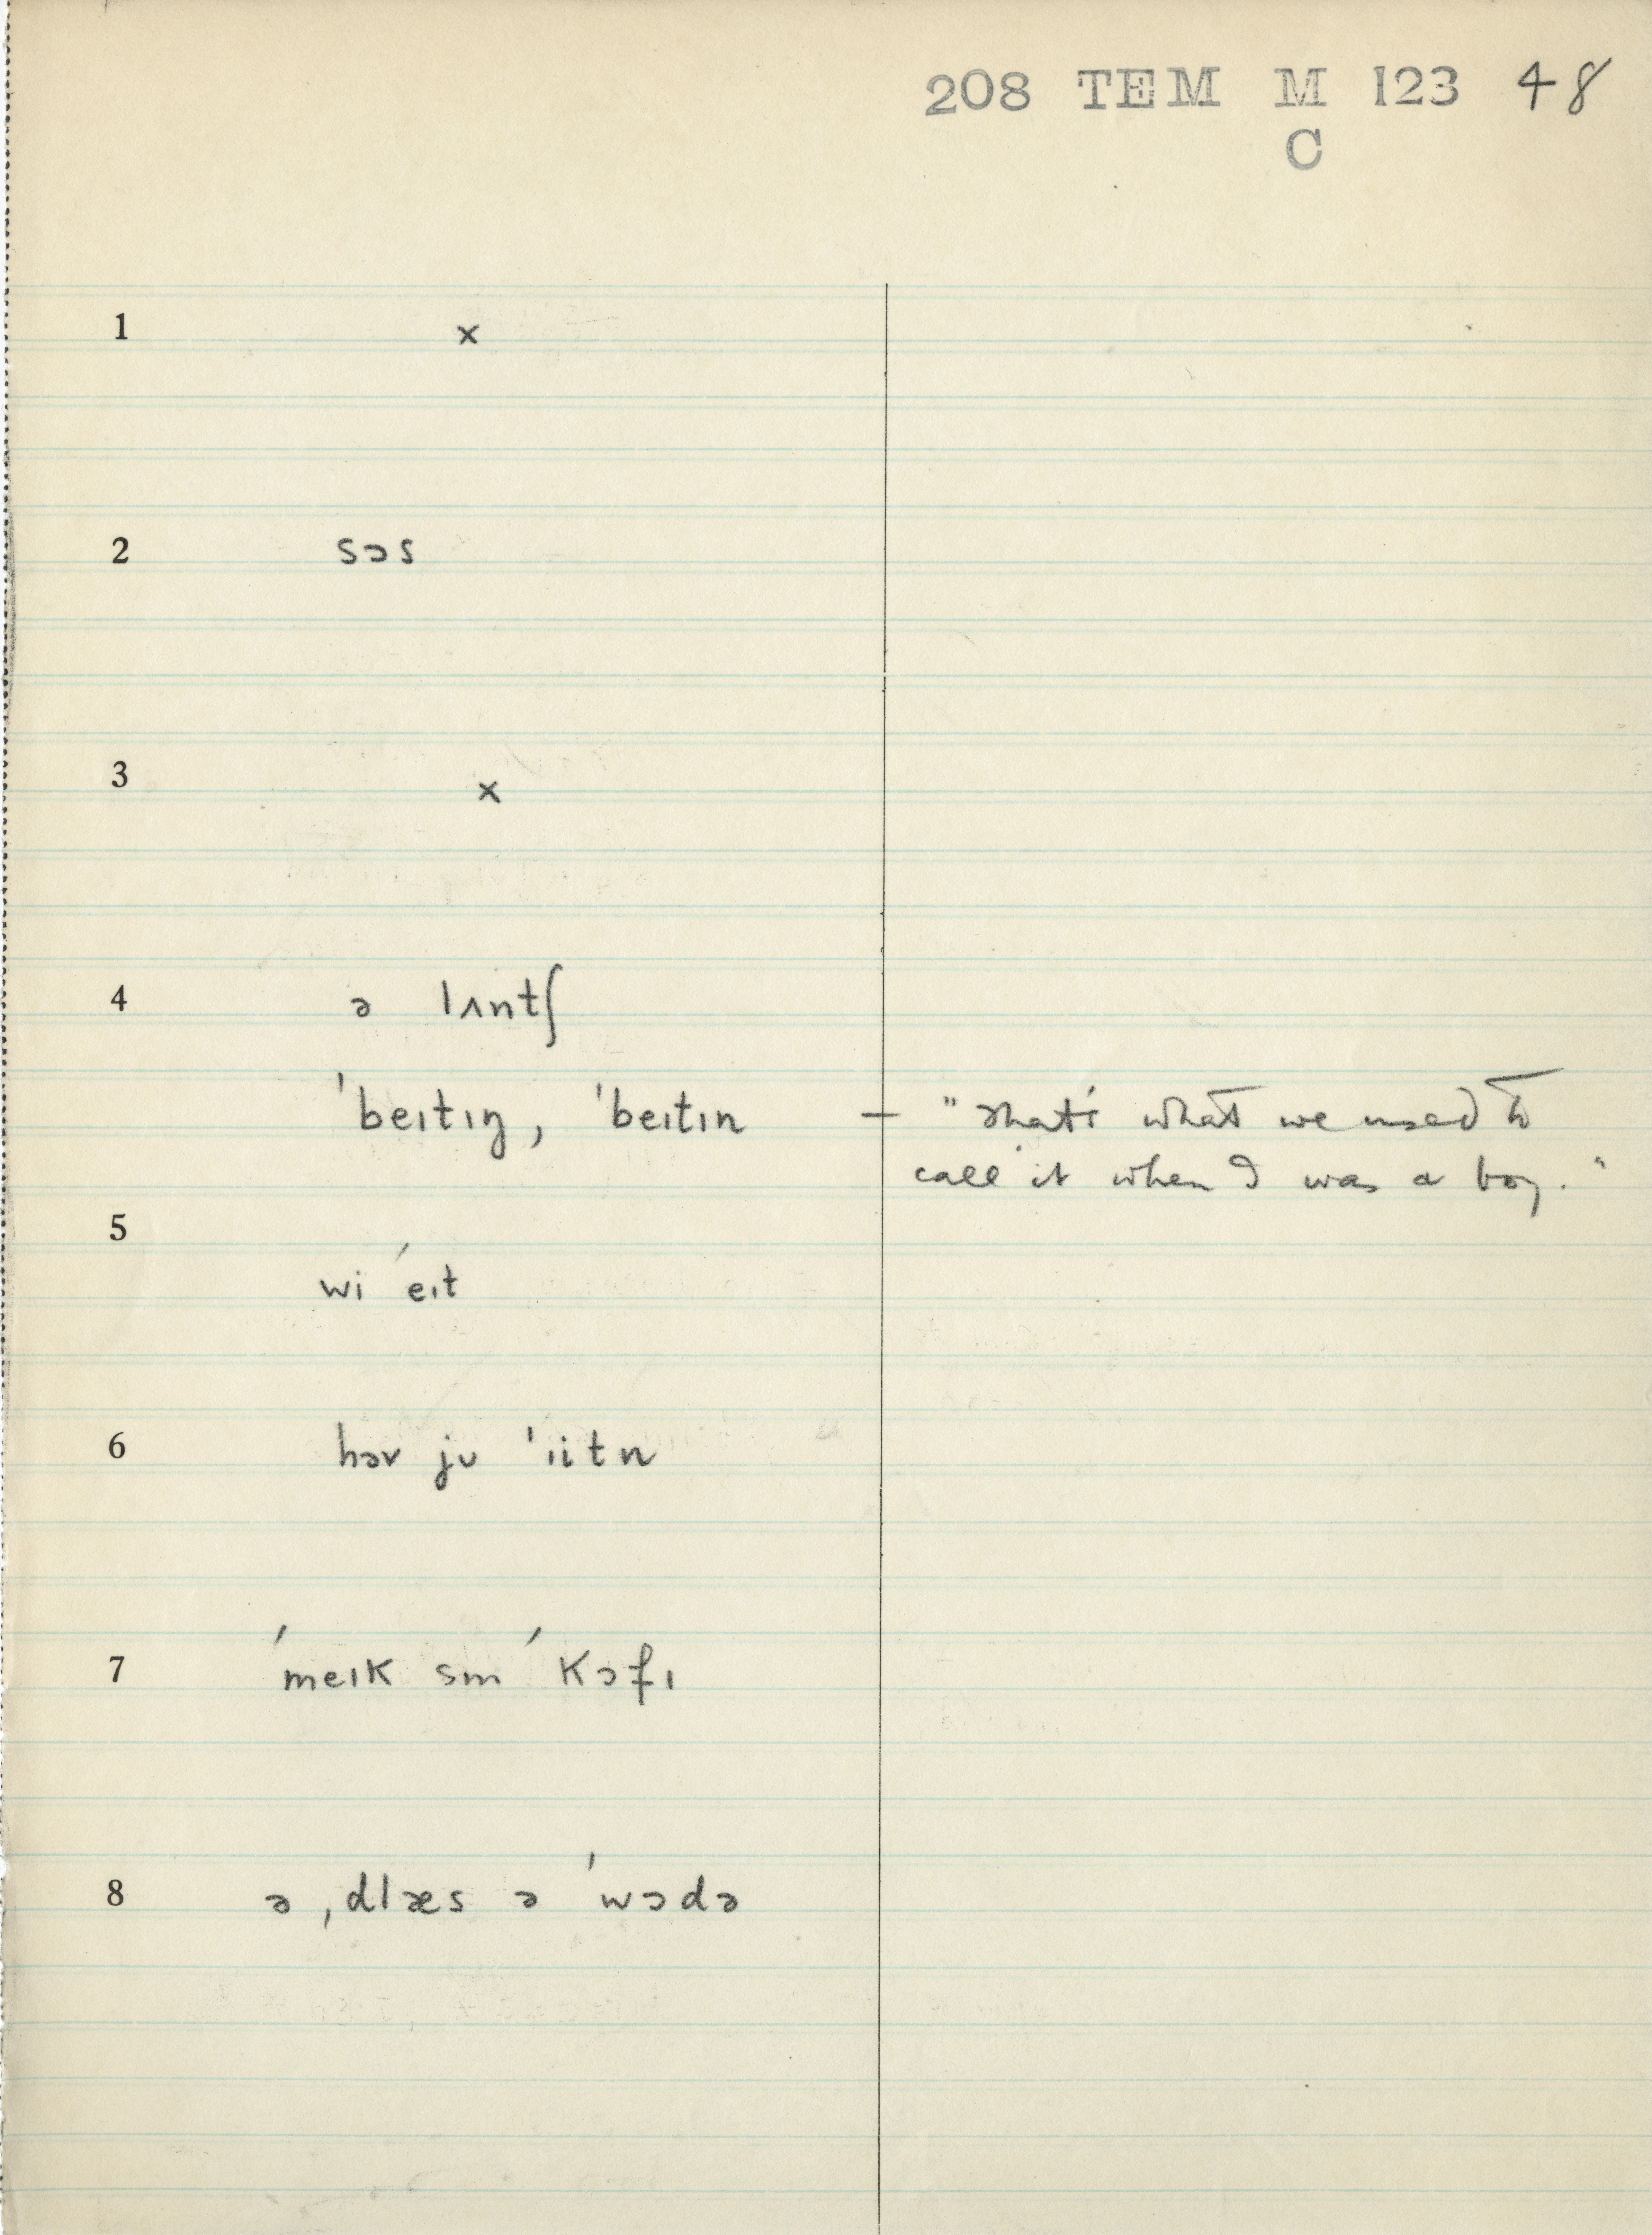 208 TEM M 123 48
C
1 x
2 sɔs
3 x
4 ə lʌntʃ
ˈbeɪtɪŋ, ˈbeɪtɪn — "That's what we used to
call it when I was a boy."
5
wi ˈeɪt
6 həv jʊ ˈɪitn
7 ˈmeɪk sm ˈkɔfɪ
8 ə ˌdlæs ə ˈwɔdə